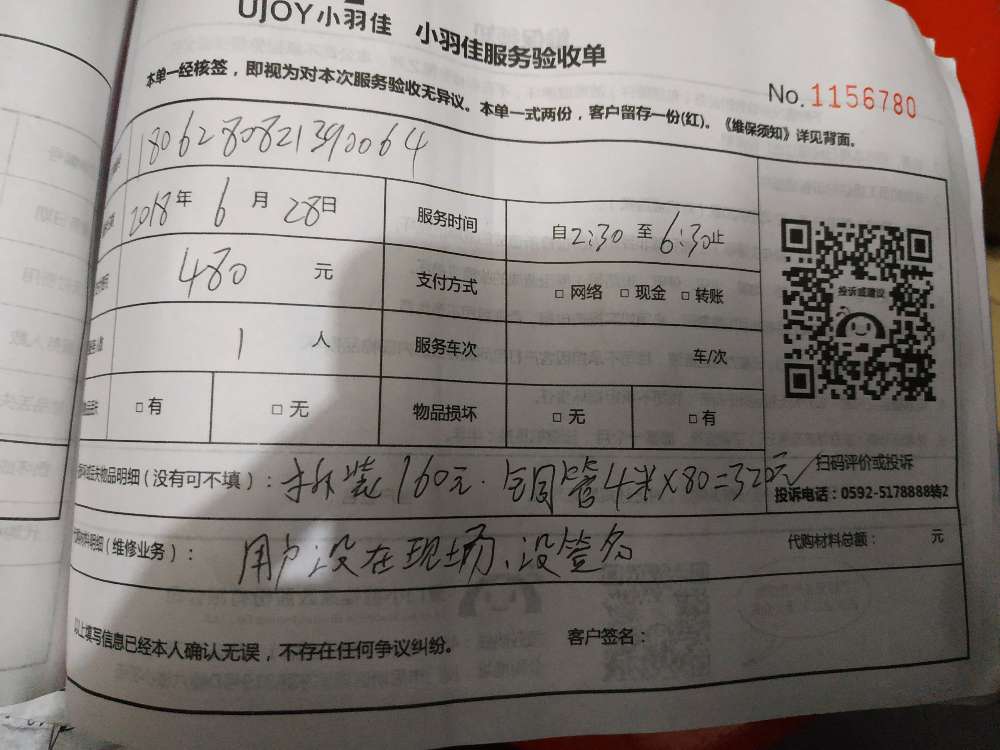 UJOY小羽佳 小羽佳服务验收单
本单一经核签，即视为对本次服务验收无异议。本单一式两份，客户留存一份(红)。《维保须知》详见背面。
No.1156780
1806280821390064
2018年6月28日 服务时间 自2:30至6:30止
480元 支付方式 □网络 □现金 □转账
1人 服务车次 车/次
□有 □无 物品损坏 □无 □有
投诉或建议
扫码评价或投诉
投诉电话：0592-5178888转2
丢失物品明细（没有可不填）：拆装160元.铜管4米×80=320元
材料明细（维修业务）：用户没在现场、没签名 代购材料总额： 元
以上填写信息已经本人确认无误，不存在任何争议纠纷。 客户签名：